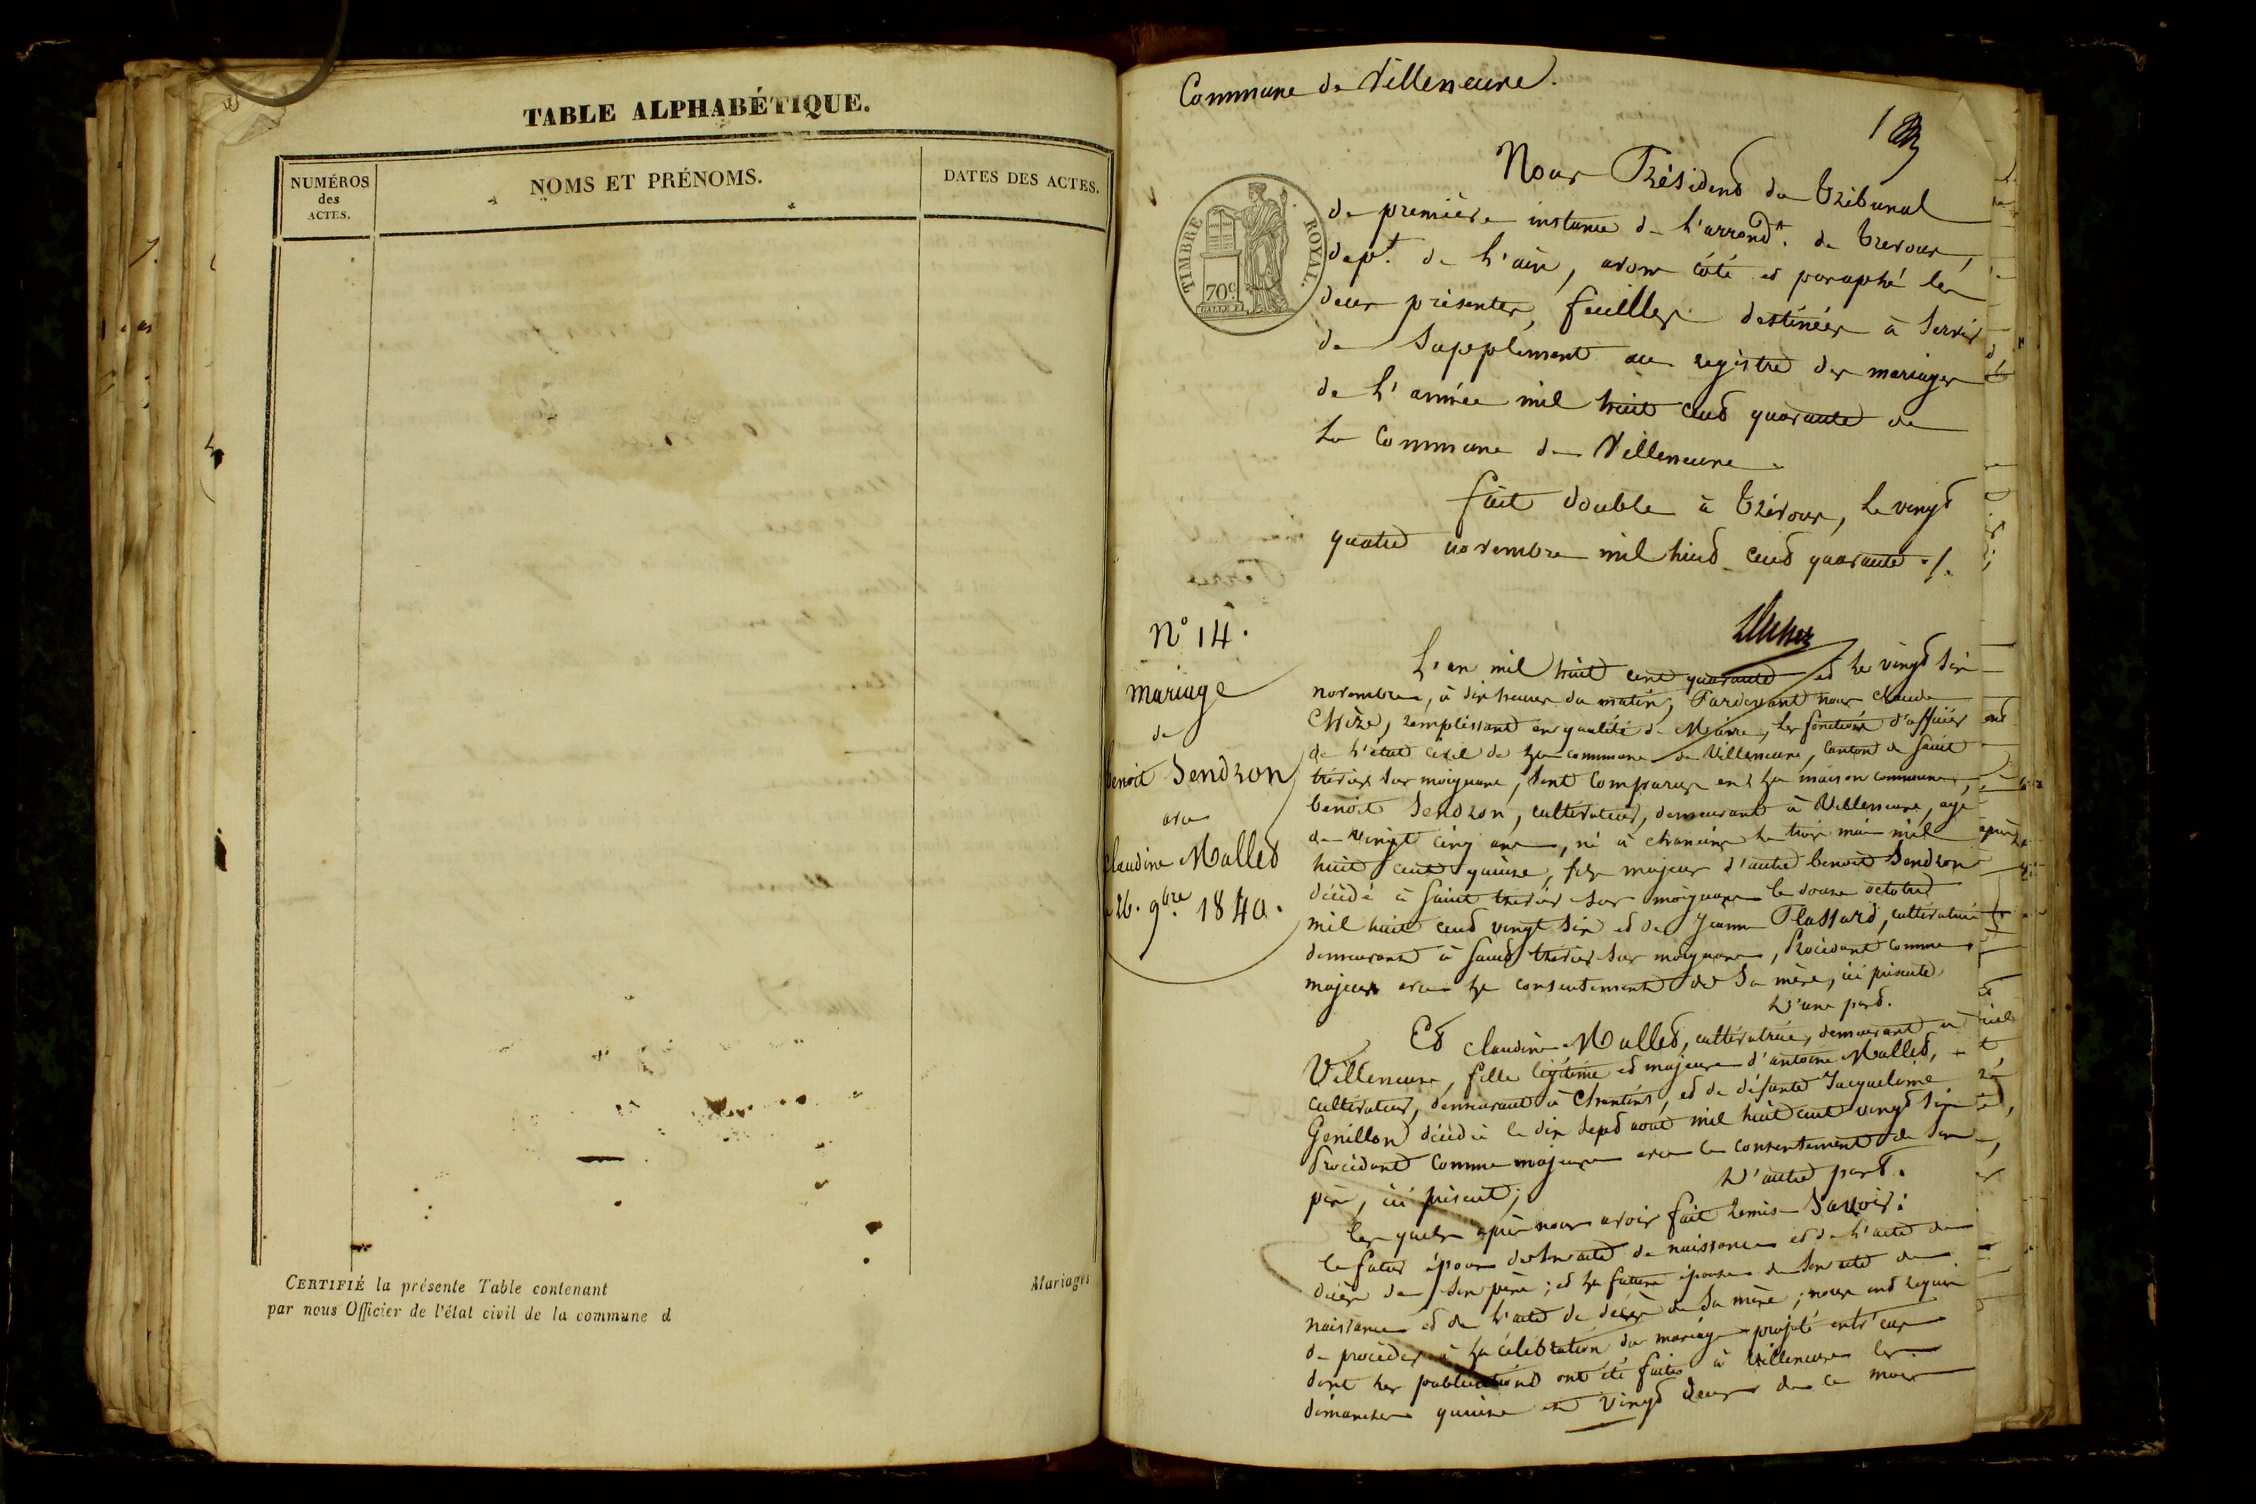 TABLE ALPHABÉTIQUE.
NUMÉROS
des
ACTES.
NOMS ET PRÉNOMS.
DATES DES ACTES.
CERTIFIÉ la présente Table contenant Mariages
par nous Officier de l'état civil de la commune d
Commune de Villeneuve.
1
TIMBRE ROYAL.
70c
Nous Président du Tribunal
de première instance de l'arrondt. de Trevoux,
dept. de l'ain, avons côté et paraphé les
deux présentes feuilles destinées à servir
de supplément au registre des mariages
de l'année mil huit cent quarante de
la Commune de Villeneuve.
fait double à Trévoux, le vingt
quatre novembre mil huit cent quarante ./.
N° 14.
mariage
de
benoit Sendron
avec
claudine Mallet
26. 9bre 1840.
L'an mil huit cent quarante et le vingt six
novembre, à dix heures du matin, Pardevant nous claude
Chize, remplissant en qualité de Maire, les fonctions d'officier
de l'état civil de la commune de Villeneuve, canton de saint
trivier sur moignans, sont comparus en la maison commune,
benoit Sendron, cultivateur, demeurant à Villeneuve, agé
de vingt cinq ans, né à chaneins le trois mai mil
huit cent quinze, fils majeur d'autre benoit Sendron
décédé à saint trivier sur moignans le douze octobre
mil huit cent vingt six et de Jeanne Plassard, cultivatrice
demeurant à saint trivier sur moignans, Procédant comme
majeur avec le consentement de sa mère, ici présente
D'une part.
Et claudine Mallet, cultivatrice, demeurant à
Villeneuve, fille légitime et majeure d'antoine Mallet,
cultivateur, demeurant à , et de défunte Jacqueline
Genillon décédée le dix sept août mil huit cent vingt six
Procédant comme majeure avec le consentement de son
père, ici présent;
D'autre part.
les quels après nous avoir fait remise Savoir:
le futur époux de son acte de naissance et de l'acte de
décès de son père; et la future épouse de son acte de
naissance et de l'acte de décès de sa mère; nous ont requis
de procéder à la célébration du mariage projeté entr'eux
dont les publications ont été faites à Villeneuve les
dimanches quinze et vingt deux de ce mois